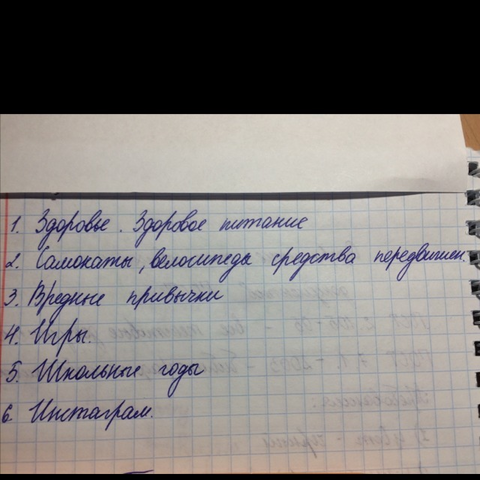 1. Здоровье. Здоровое питание
2. Самокаты, велосипеды средства передвижен.
3. Вредные привычки
4. Игры.
5. Школьные годы
6. Инстаграм.